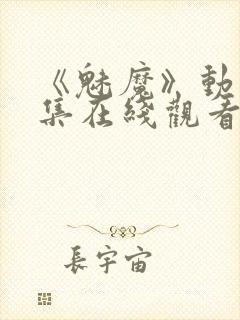 《魅魔》動
集在綫觀看
長宇宙